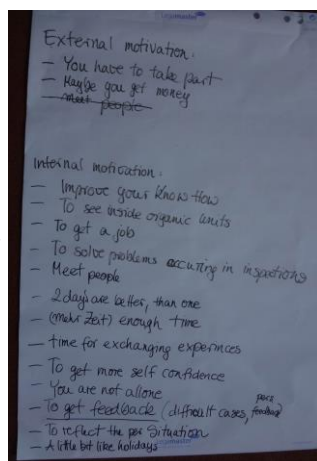 External motivation:
- You have to take part
- Maybe you get money
- meet people
Internal motivation:
- Improve your know how
- To see inside organic units
- To get a job
- To solve problems occuring in inspections
- Meet people
- 2 days are better, than one
- (mehr Zeit) enough time
- time for exchanging experinces
- To get more self confidence
- You are not allone
- To get feedback (difficult cases, feedback)
- To reflect the situation
- A little bit like holidays